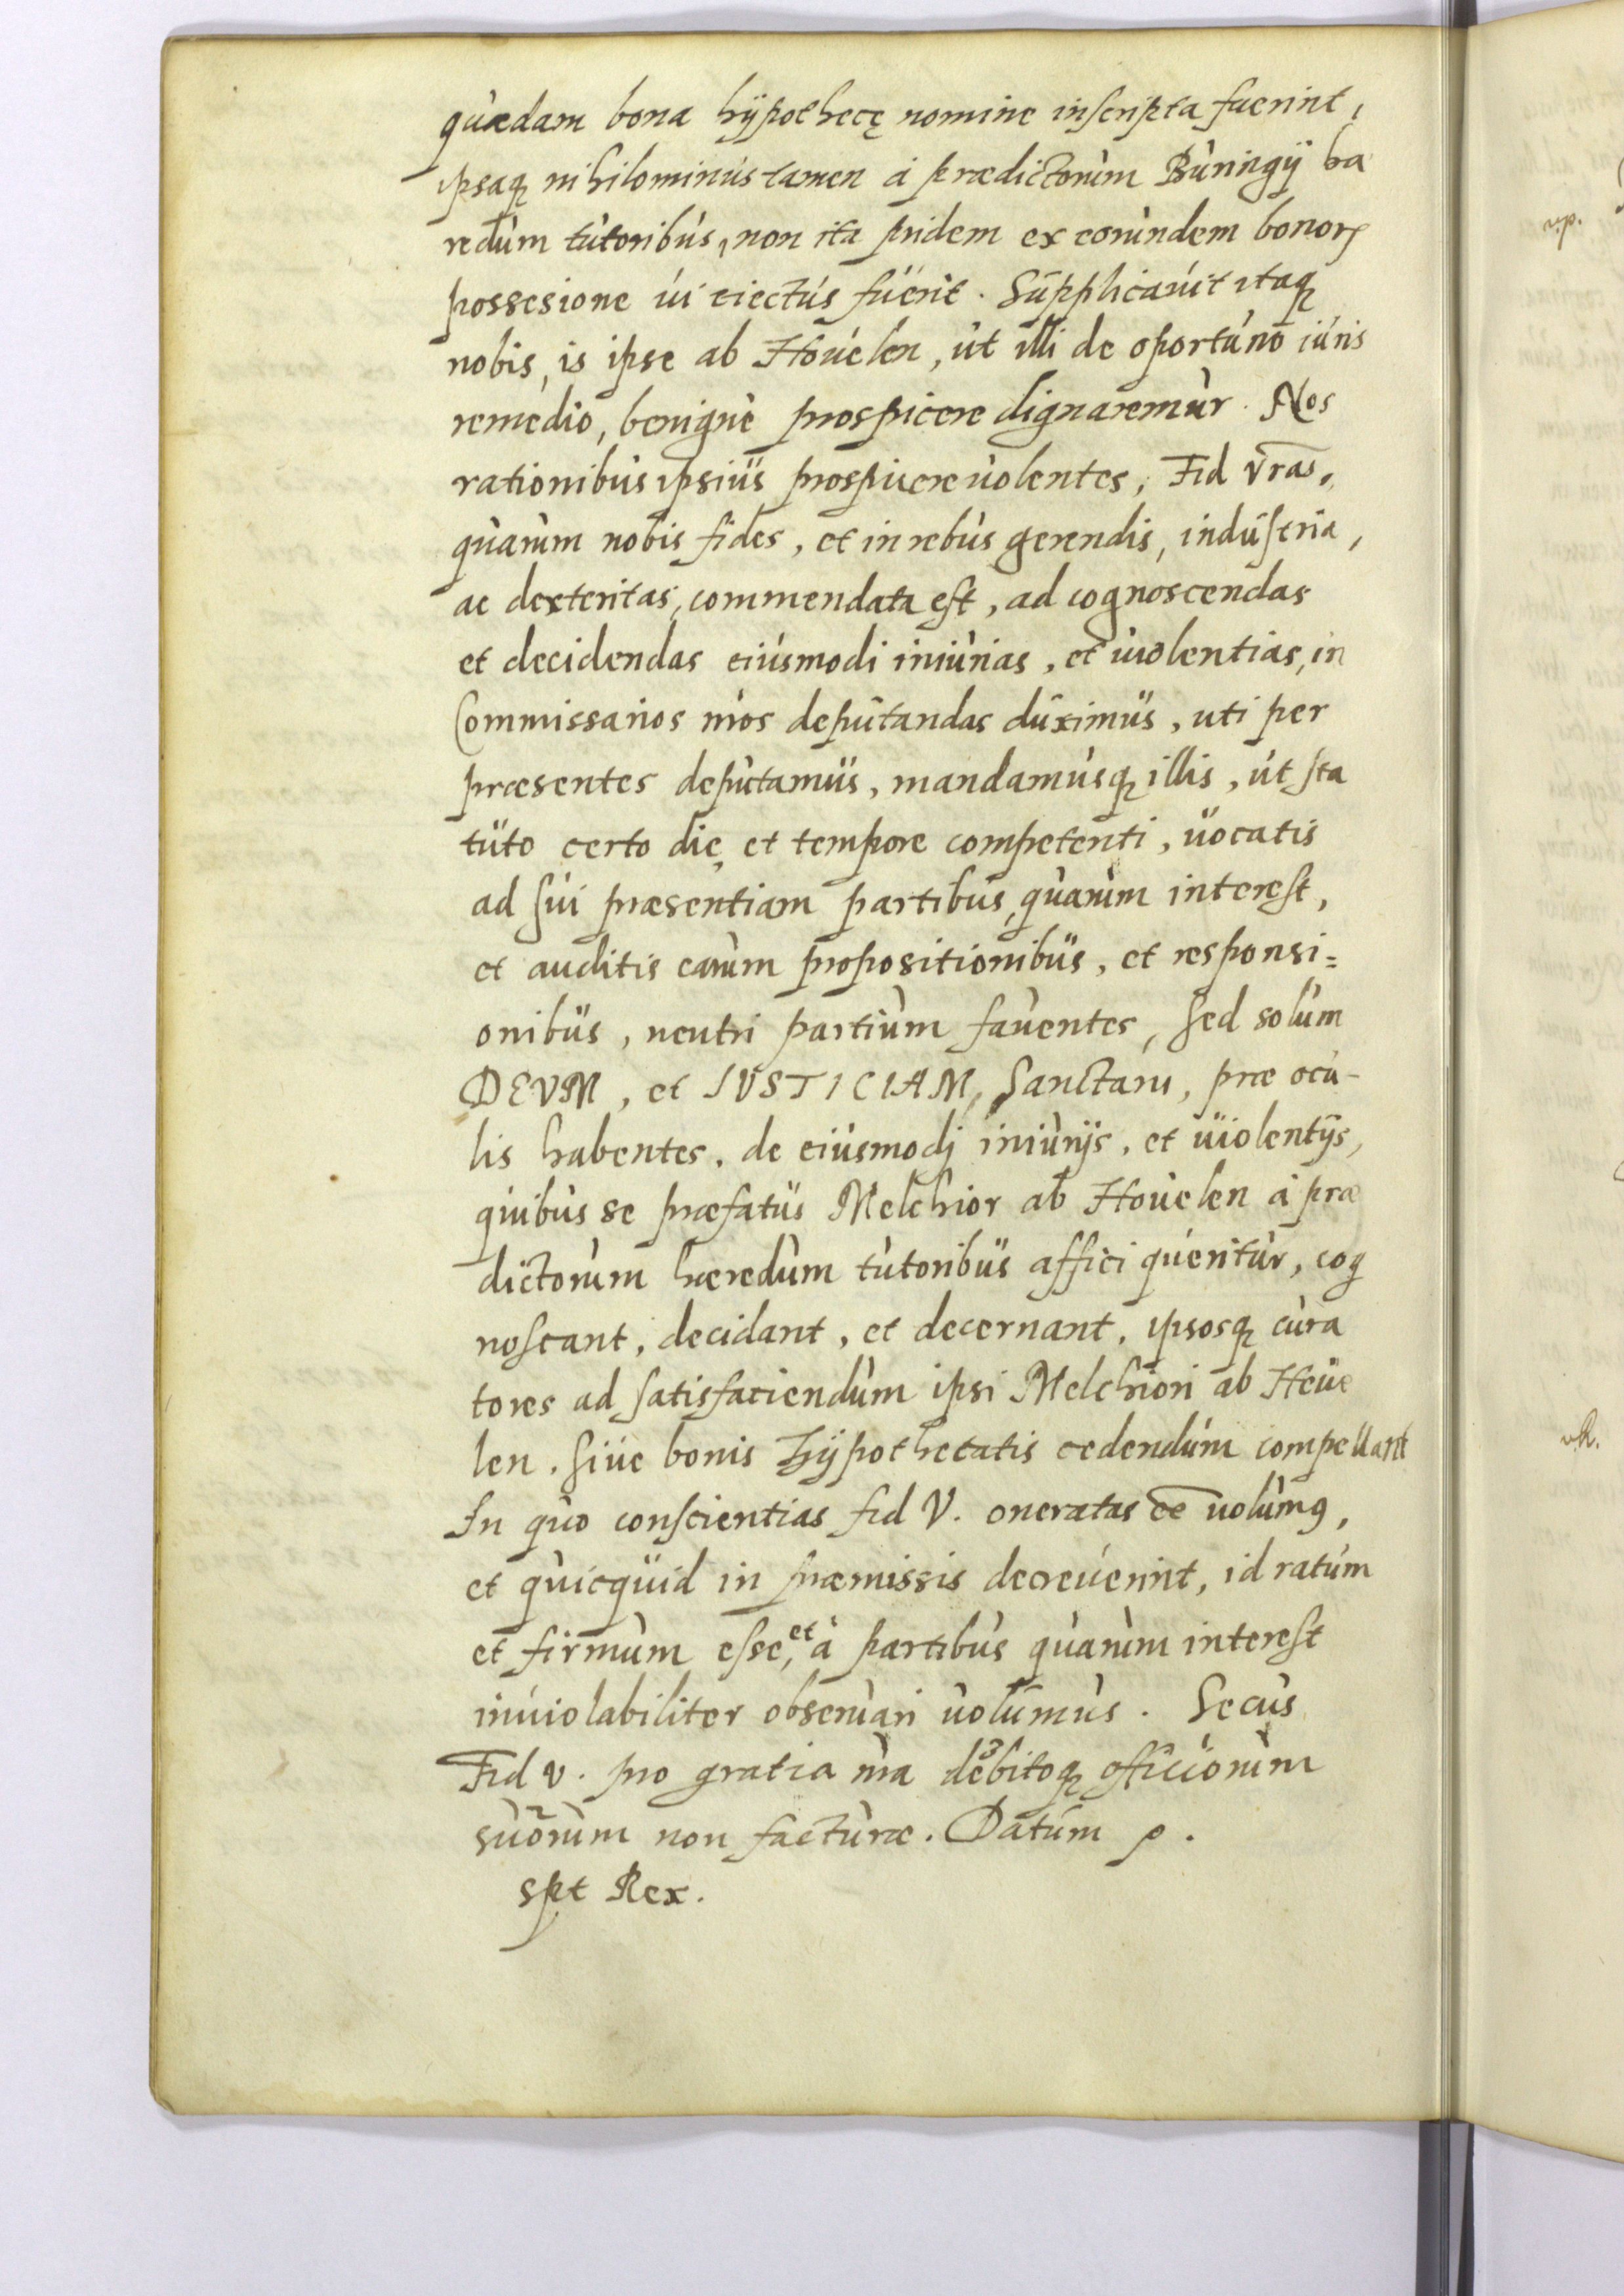 quædam bona hÿpothecę nomine inscripta fuerint,
ipsaq nihilominus tamen à prædictorum Buningÿ hæ
redum tutoribus, non ita pridem ex eorundem bonor
possesione ui eiectus fuerit. Supplicauit itaq
nobis, is ipse ab Houelen, ut illi de oportuno iuris
remedio, benignè prospicere dignaremur. Nos
rationibus ipsius prospicere uolentes, Fid vras,
quarum nobis fides, et in rebus gerendis, industria,
ac dexteritas, commendata est, ad cognoscendas
et decidendas eiusmodi iniurias, et uiolentias, in
Commissarios nros deputandas duximus, uti per
præsentes deputamus, mandamusq illis, ut sta
tuto certo die, et tempore competenti, uocatis
ad sui præsentiam partibus, quarum interest,
et auditis earum propositionibus, et responsi=
onibus, neutri partium fauentes, sed solum
DEVM, et IVSTICIAM, Sanctam, præ ocu-
lis habentes, de eiusmodj iniurÿs, et uiolentÿs,
quibus se præfatus Melchior ab Houelen à præ
dictorum hæredum tutoribus affici queritur, cog
noscant, decidant, et decernant, ipsosq cura
tores ad satisfaciendum ipsi Melchiori ab Heue
len, siue bonis hÿpothecatis cedendum compellant
In quo conscientias fid V. oneratas ee uolum9,
et quicquid in præmissis decreuerint, id ratum
et firmum esse, et à partibus quarum interest
inuiolabiliter obseruari uolumus. Secus
Fid v. pro gratia nra debitoq officiorum
suorum non facturæ. Datum
spt Rex.
vp.
vk.